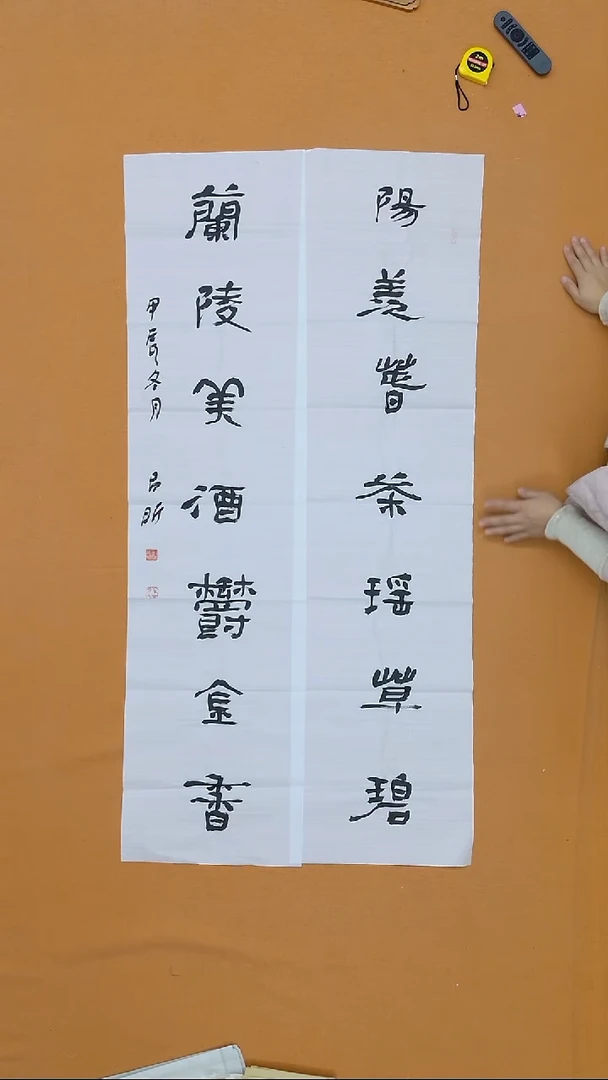 陽羨春茶瑶草碧
蘭陵美酒鬱金香
甲辰冬月 吕昕